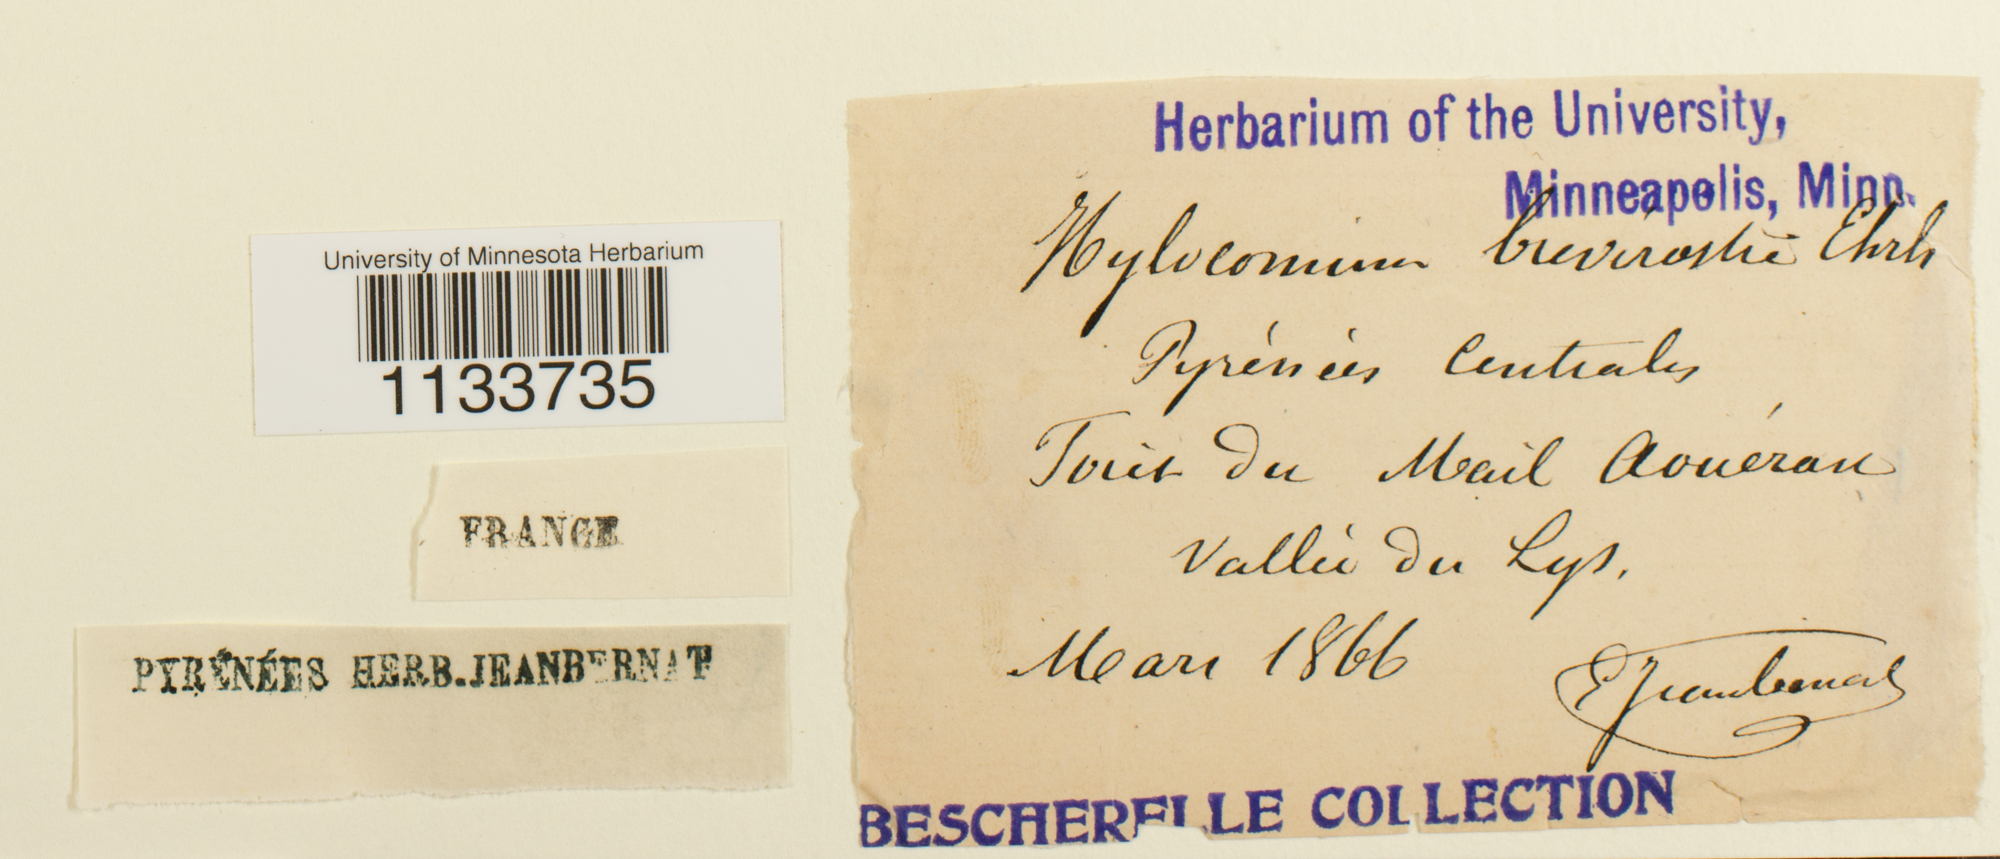 University of Minnesota Herbarium
1133735
FRANCE
PYRÉNÉES HERB. JEANBERNAT
Herbarium of the University,
Minneapolis, Minn.
Hylocomium brevirostre Ehrh
Pyrénées Centrales
Forêt du Mail Aouéran
Vallée du Lys.
Mars 1866
E Jeanbernat
BESCHERELLE COLLECTION